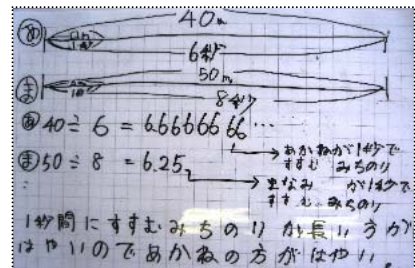 あ 40m
1秒
6秒
50m
ま
1秒
8秒
あ 40÷6=6.6666666…
→あかねが1秒で
すすむ みちのり
ま 50÷8=6.25
→まなみ が1秒で
すすむ みちのり
1秒間にすすむみちのりが長い方が
はやいのであかねの方がはやい。